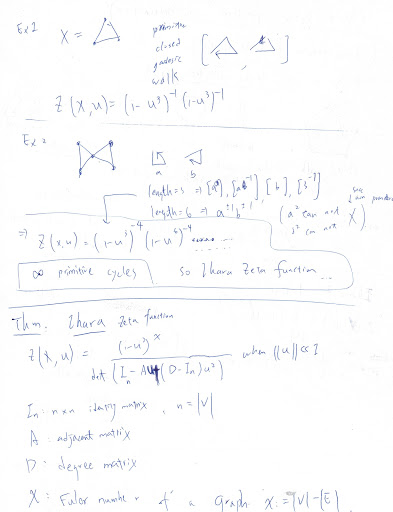 Ex 1 X =
primitive
closed
geodesic
walk
Z(X,u) = (1-u³)⁻¹(1-u³)⁻¹
Ex 2
a b
length=3 ⇒ [a], [a⁻¹], [b], [b⁻¹]
length=6 ⇒ a^±1 b^±1
(a² can not
b² can not)
⇒ Z(X,u) = (1-u³)⁻⁴ (1-u⁶)⁻⁴ ......
∞ primitive cycles so Ihara Zeta function ...
Thm. Ihara Zeta function
Z(X,u) = (1-u²)^χ / det(Iₙ - Au + (D-Iₙ)u²) when ||u|| << 1
Iₙ: n×n identity matrix, n = |V|
A: adjacent matrix
D: degree matrix
χ: Euler number of a graph. χ := |V|-|E|.